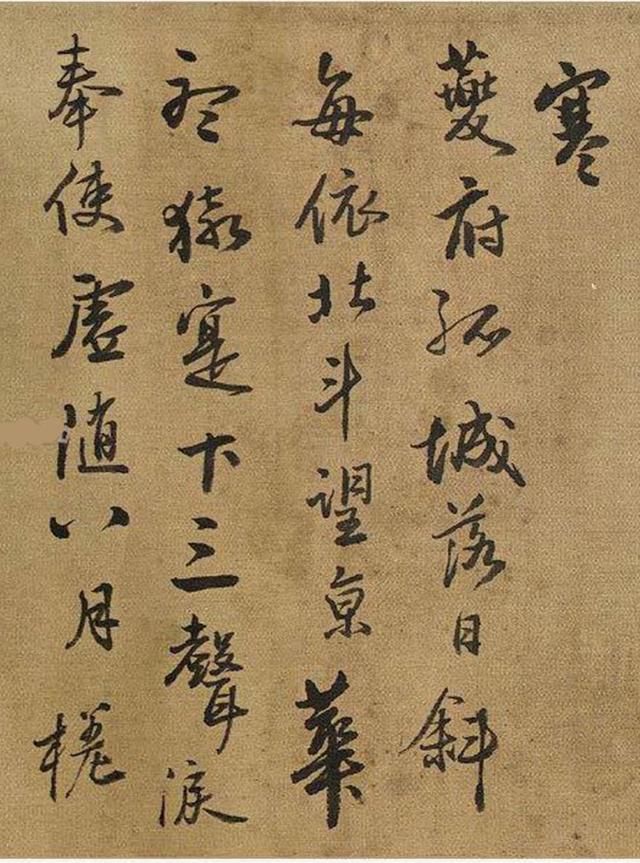 寒
夔府孤城落日斜
每依北斗望京華
聽猿寔下三聲淚
奉使虛随八月槎